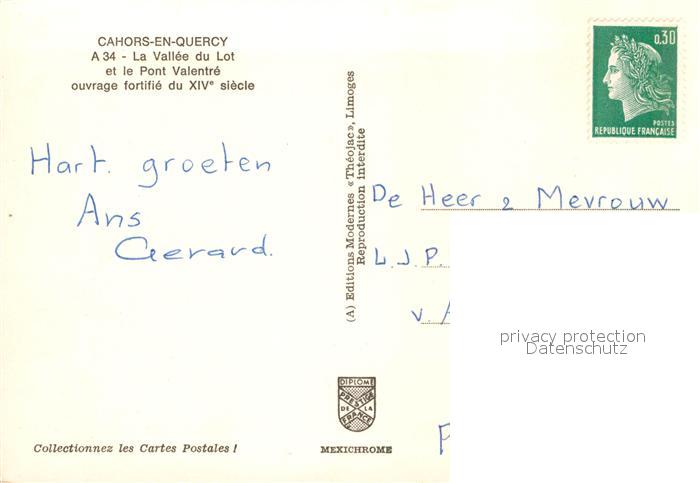 CAHORS-EN-QUERCY
A 34 - La Vallée du Lot
et le Pont Valentré
ouvrage fortifié du XIVe siècle
Hart. groeten
Ans
Gerard.
Collectionnez les Cartes Postales !
(A) Editions Modernes « Théojac », Limoges
Reproduction Interdite
DIPLOME
PRESTIGE
DE LA
FRANCE
MEXICHROME
0,30
POSTES
REPUBLIQUE FRANÇAISE
De Heer & Mevrouw
L.J.P.
v.
privacy protection
Datenschutz